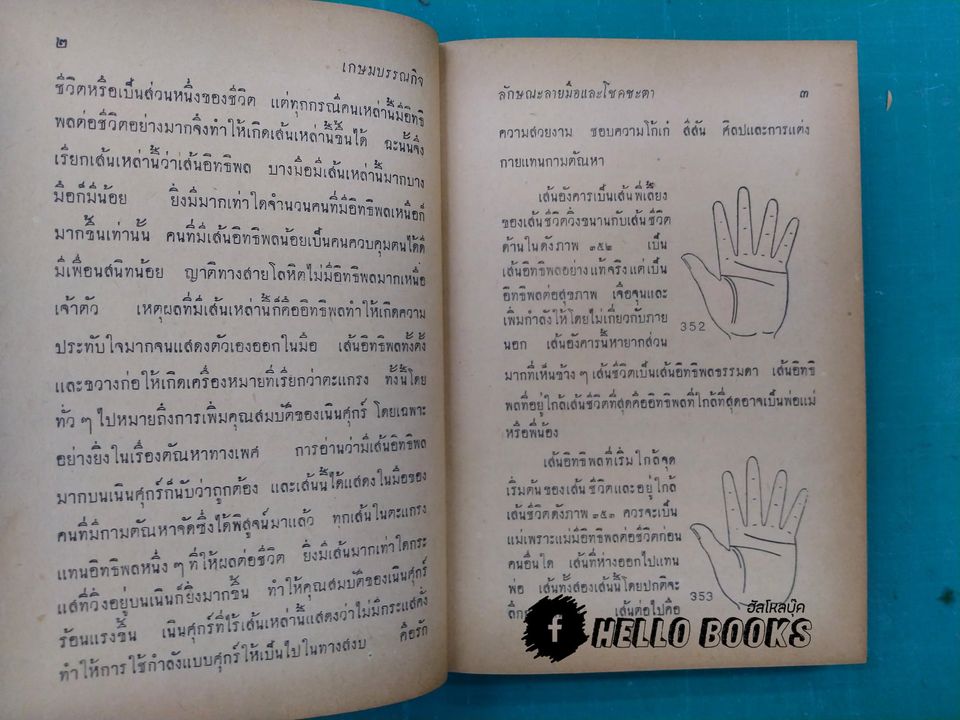 ๒
เกษมบรรณกิจ
ชีวิตหรือเป็นส่วนหนึ่งของชีวิต แต่ทุกกรณีคนเหล่านี้มีอิทธิ
พลต่อชีวิตอย่างมากจึงทำให้เกิดเส้นเหล่านี้ขึ้นได้ ฉะนั้นจึง
เรียกเส้นเหล่านี้ว่าเส้นอิทธิพล บางมือมีเส้นเหล่านี้มากบาง
มือก็มีน้อย ยิ่งมีมากเท่าใดจำนวนคนที่มีอิทธิพลเหนือก็
มากขึ้นเท่านั้น คนที่มีเส้นอิทธิพลน้อยเป็นคนควบคุมตนได้ดี
มีเพื่อนสนิทน้อย ญาติทางสายโลหิตไม่มีอิทธิพลมากเหนือ
เจ้าตัว เหตุผลที่มีเส้นเหล่านี้ก็คืออิทธิพลทำให้เกิดความ
ประทับใจมากจนแสดงตัวเองออกในมือ เส้นอิทธิพลทั้งตั้ง
และขวางก่อให้เกิดเครื่องหมายที่เรียกว่าตะแกรง ทั้งนี้โดย
ทั่ว ๆ ไปหมายถึงการเพิ่มคุณสมบัติของเนินศุกร์ โดยเฉพาะ
อย่างยิ่งในเรื่องตัณหาทางเพศ การอ่านว่ามีเส้นอิทธิพล
มากบนเนินศุกร์ก็นับว่าถูกต้อง และเส้นนี้ได้แสดงในมือของ
คนที่มีกามตัณหาจัดซึ่งได้พิสูจน์มาแล้ว ทุกเส้นในตะแกรง
แทนอิทธิพลหนึ่ง ๆ ที่ให้ผลต่อชีวิต ยิ่งมีเส้นมากเท่าใดกระ
แสที่วิ่งอยู่บนเนินก็ยิ่งมากขึ้น ทำให้คุณสมบัติของเนินศุกร์
ร้อนแรงขึ้น เนินศุกร์ที่ไร้เส้นเหล่านี้แสดงว่าไม่มีกระแสดึง
ทำให้การใช้กำลังแบบศุกร์ให้เป็นไปในทางสงบ คือรัก
ลักษณะลายมือและโชคชะตา ๓
ความสวยงาม ชอบความโก้เก๋ สีสัน ศิลปและการแต่ง
กายแทนกามตัณหา
เส้นอังคารเป็นเส้นพี่เลี้ยง
ของเส้นชีวิตวิ่งขนานกับเส้นชีวิต
ด้านในดังภาพ ๓๕๒ เป็น
เส้นอิทธิพลอย่างแท้จริงแต่เป็น
อิทธิพลต่อสุขภาพ เจือจุนและ
เพิ่มกำลังให้โดยไม่เกี่ยวกับภาย
นอก เส้นอังคารนี้หายากส่วน
352
มากที่เห็นข้าง ๆ เส้นชีวิตเป็นเส้นอิทธิพลธรรมดา เส้นอิทธิ
พลที่อยู่ใกล้เส้นชีวิตที่สุดคืออิทธิพลที่ใกล้ที่สุดอาจเป็นพ่อแม่
หรือพี่น้อง
เส้นอิทธิพลที่เริ่มใกล้จุด
เริ่มต้นของเส้นชีวิตและอยู่ใกล้
เส้นชีวิตดังภาพ ๓๕๓ ควรจะเป็น
แม่เพราะแม่มีอิทธิพลต่อชีวิตก่อน
คนอื่นใด เส้นที่ห่างออกไปแทน
พ่อ เส้นทั้งสองเส้นนี้โดยปกติจะ
353
ลึก เส้นต่อไปคือ
ฮัลโหลบุ๊ค
f HELLO BOOKS